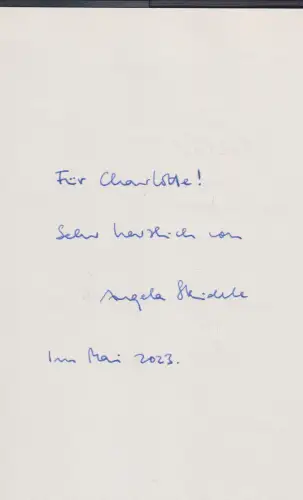 Für Charlotte!
Sehr herzlich von
Angela Steidele
Im Mai 2023.